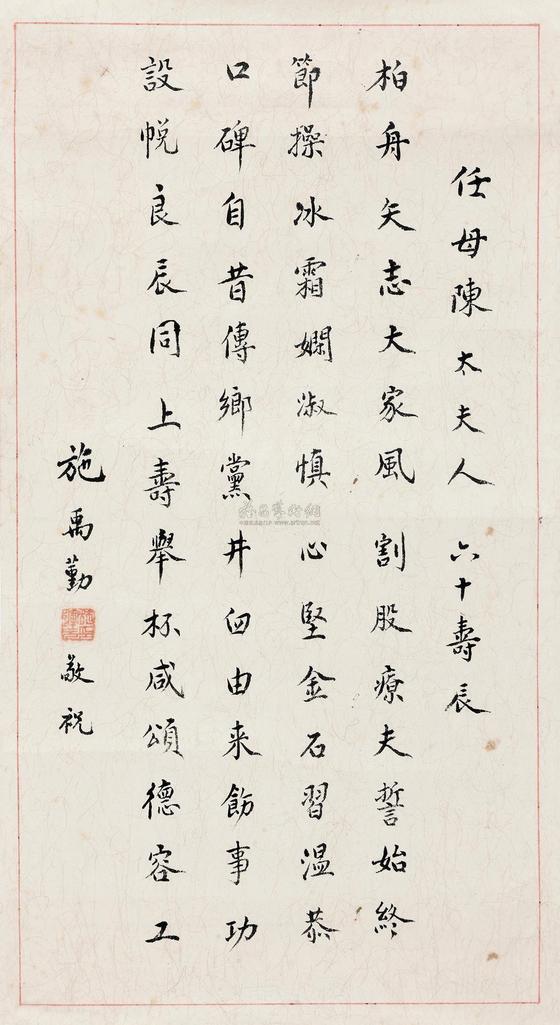 任母陳太夫人 六十壽辰
柏舟矢志大家風割股療夫誓始終
節操冰霜嫻淑慎心堅金石習溫恭
口碑自昔傳鄉黨井臼由来飭事功
設帨良辰同上壽舉杯咸頌德容工
施禹勤 敬祝